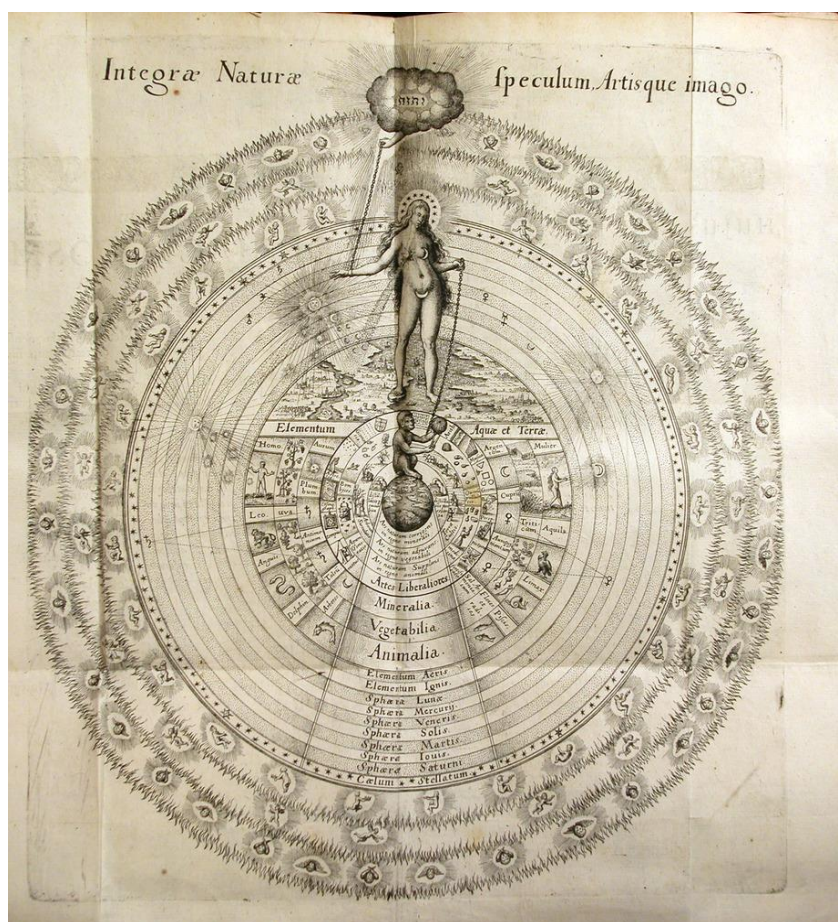 Integræ Naturæ ſpeculum, Artisque imago.
יהוה
Elementum Aquæ et Terræ
Homo
Aurum
Plumbum
Leo
uvæ
Anguis
Delphin
Argentum
Mulier
Cuprum
Triticum
Aquila
Limax
Pisces
Artes Liberaliores
Mineralia.
Vegetabilia.
Animalia.
Elementum Aeris.
Elementum Ignis.
Sphæra Lunæ
Sphæra Mercurij.
Sphæra Veneris.
Sphæra Solis
Sphæra Martis.
Sphæra Iouis.
Sphæra Saturni
Cœlum Stellatum